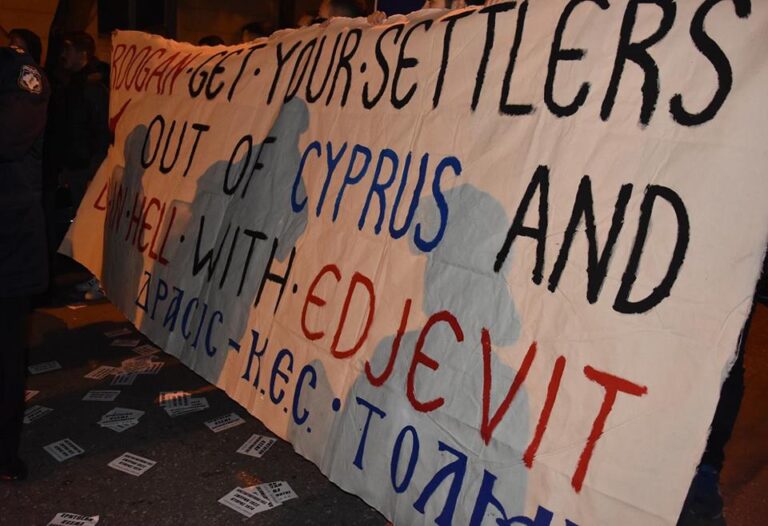 RDOGAN·GET·YOUR·SETTLERS
OUT OF CYPRUS AND
HELL·WITH·EDJEVIT
ΔΡΑCΙC-Κ.Ε.C.·